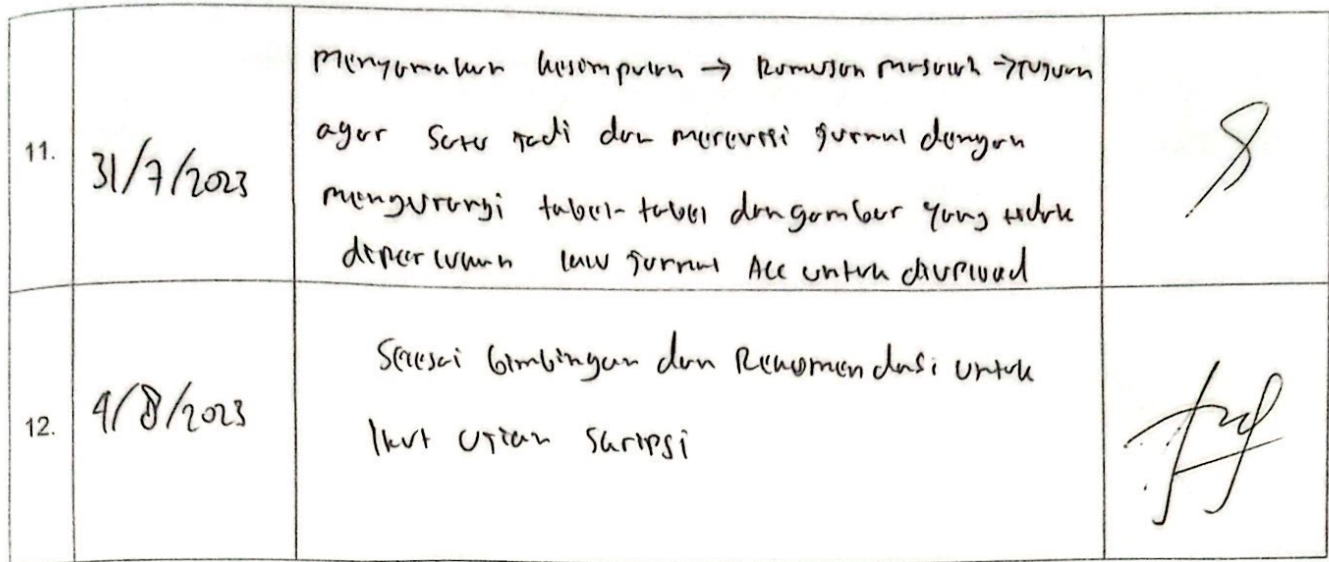 11.
31/7/2023
Menyamakan kesimpulan → Rumusan masalah → tujuan
agar satu padi dan merevisi jurnal dengan
mengurangi tabel-tabel dan gambar yang tidak
diperlukan lalu jurnal ACC untuk diupload
12.
4/8/2023
Selesai bimbingan dan Rekomendasi untuk
Ikut Ujian Skripsi